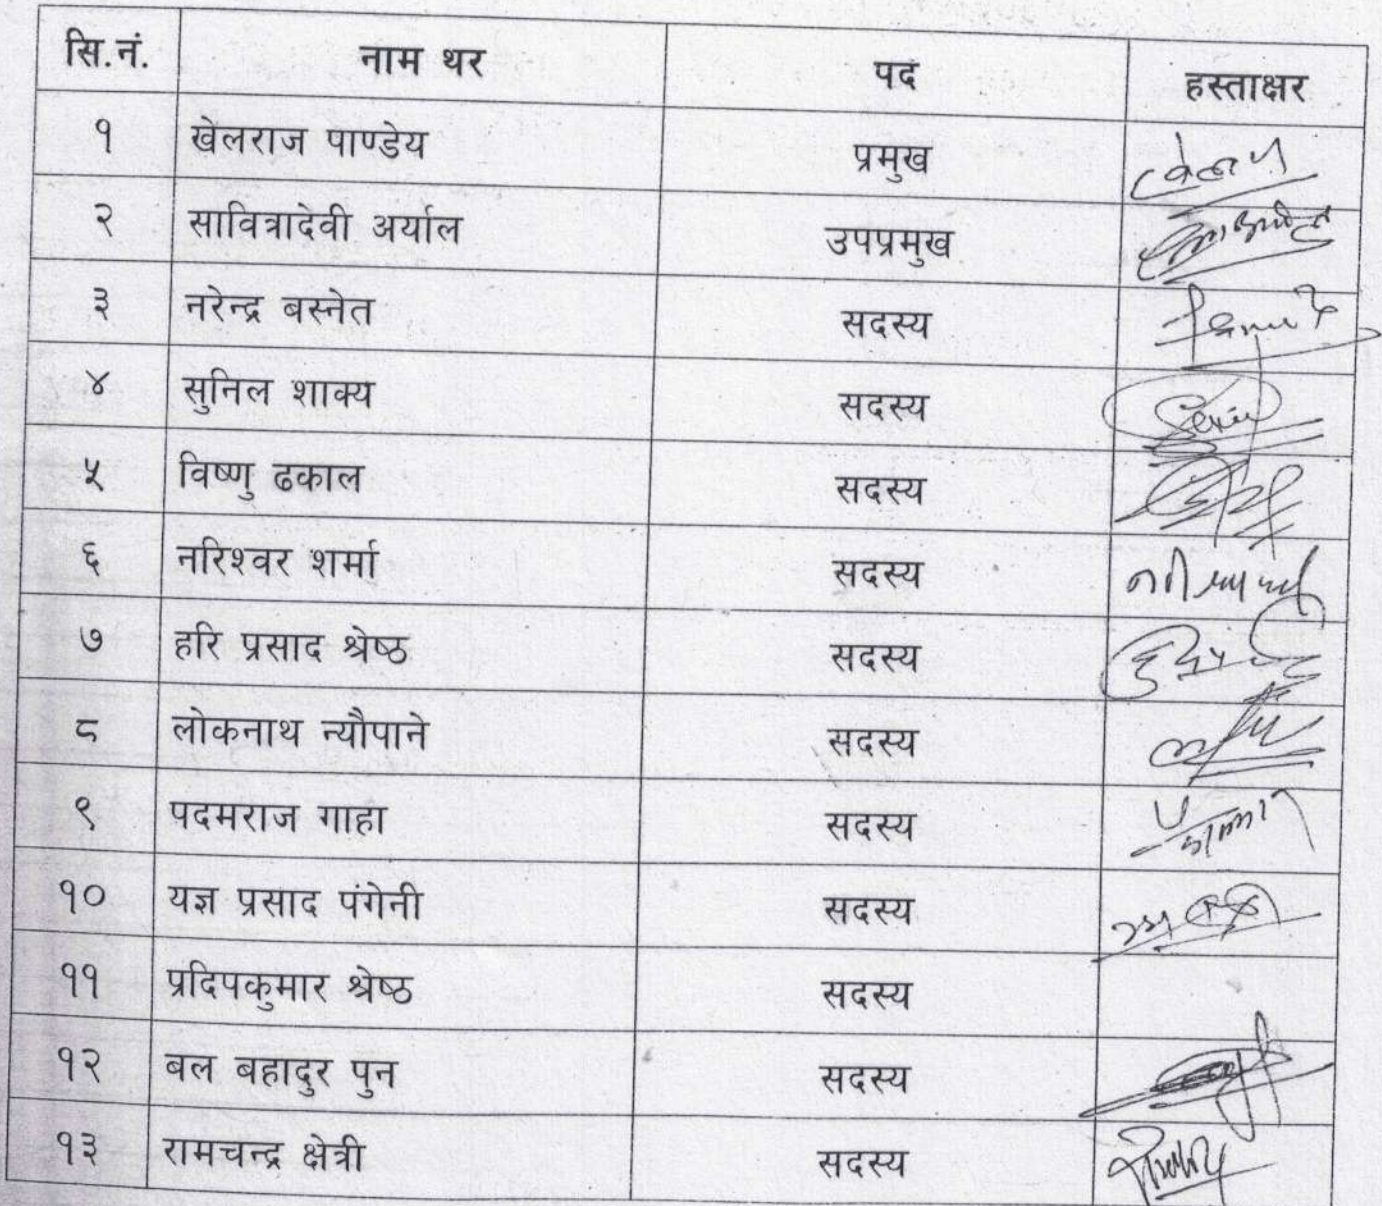 सि.नं. नाम थर पद हस्ताक्षर
१ खेलराज पाण्डेय प्रमुख
२ सावित्रादेवी अर्याल उपप्रमुख
३ नरेन्द्र बस्नेत सदस्य
४ सुनिल शाक्य सदस्य
५ विष्णु ढकाल सदस्य
६ नरिश्वर शर्मा सदस्य
७ हरि प्रसाद श्रेष्ठ सदस्य
८ लोकनाथ न्यौपाने सदस्य
९ पदमराज गाहा सदस्य
१० यज्ञ प्रसाद पंगेनी सदस्य
११ प्रदिपकुमार श्रेष्ठ सदस्य
१२ बल बहादुर पुन सदस्य
१३ रामचन्द्र क्षेत्री सदस्य